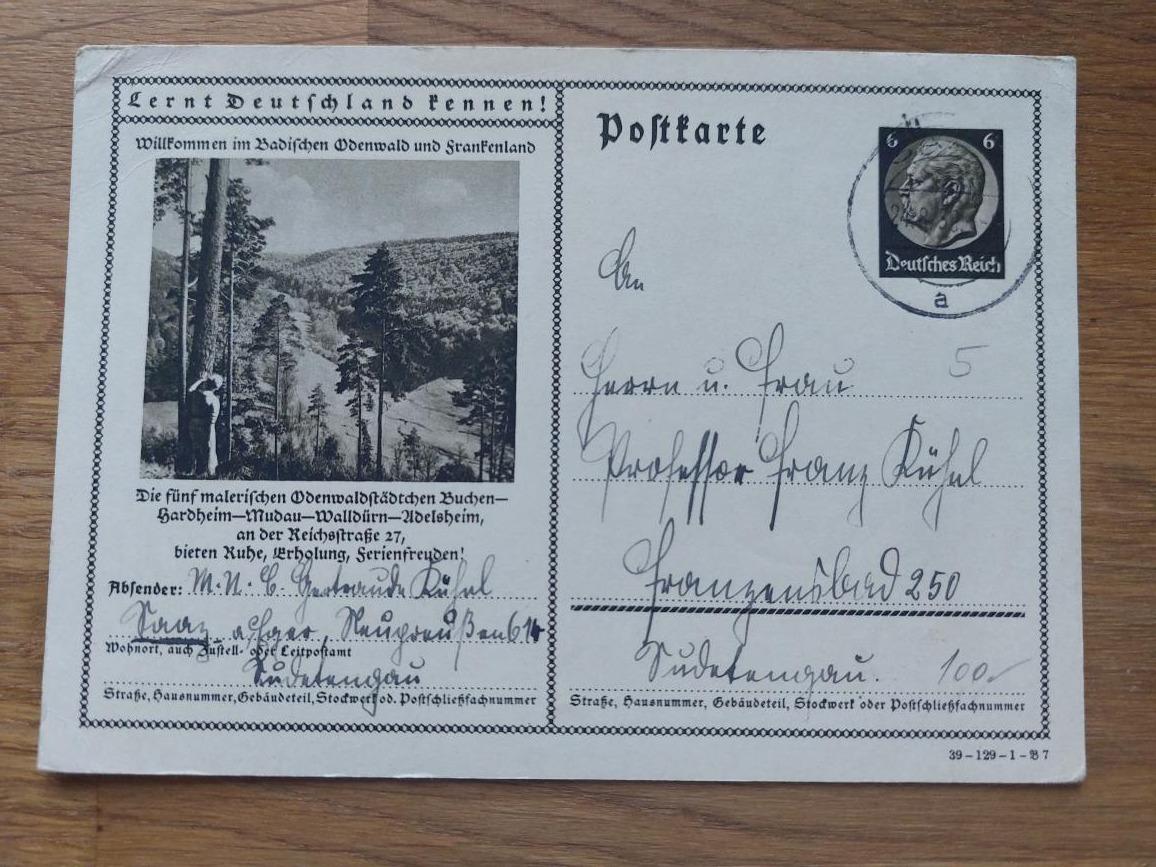 Lernt Deutschland kennen!
Willkommen im Badischen Odenwald und Frankenland
Die fünf malerischen Odenwaldstädtchen Buchen—
Hardheim—Mudau—Walldürn—Adelsheim,
an der Reichsstraße 27,
bieten Ruhe, Erholung, Ferienfreuden!
Absender: M. U. C. Gertraude Kühnl
Saaz a/Eger, Neupreußen 614
Wohnort, auch Zustell- oder Leitpostamt
Sudetengau
Straße, Hausnummer, Gebäudeteil, Stockwerk od. Postschließfachnummer
Postkarte
6 6
Deutsches Reich
a
An
5
Herrn u. Frau
Professor Franz Kühnl
Franzensbad 250
Sudetengau. 100.-
Straße, Hausnummer, Gebäudeteil, Stockwerk oder Postschließfachnummer
39-129-1-B 7